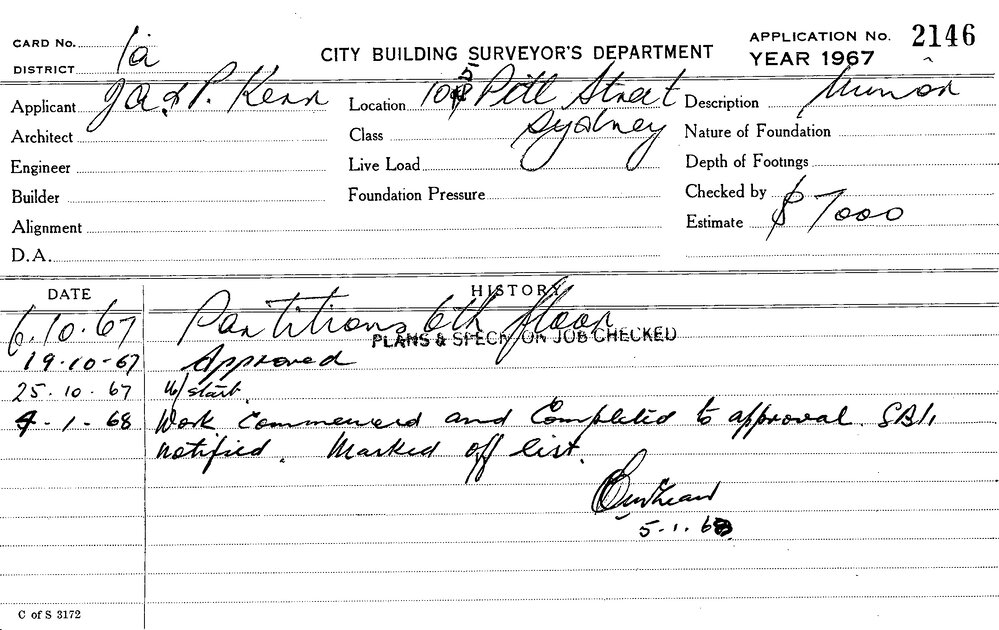 CARD No. 1a
DISTRICT
CITY BUILDING SURVEYOR'S DEPARTMENT
APPLICATION No. 2146
YEAR 1967
Applicant J a & P. Kerr
Location Pitt Street
Sydney
Description
Architect
Class
Nature of Foundation
Engineer
Live Load
Depth of Footings
Builder
Foundation Pressure
Checked by
Alignment
Estimate $ 7000
D.A.
DATE
HISTORY
6.10.67 Partitions 6th floor
PLANS & SPECN ON JOB CHECKED
19.10.67 Approved
25.10.67 W/start.
4.1.68 Work commenced and completed to approval. SBI,
notified. Marked off list.
5.1.68
C of S 3172